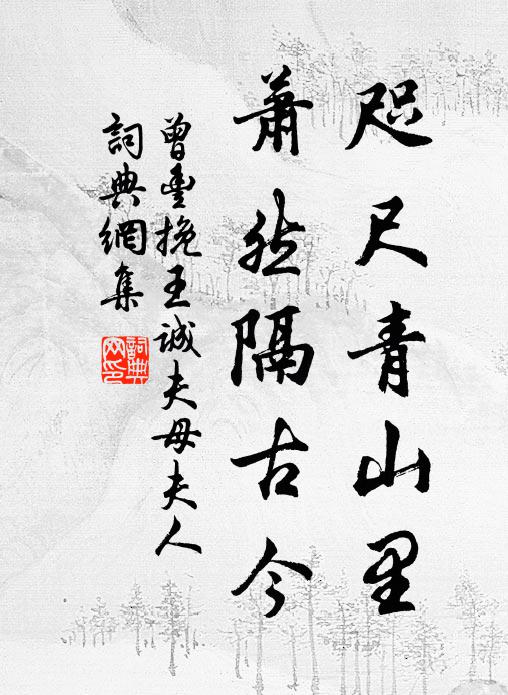 咫尺青山里
蕭然隔古今
曾豐挽王誠夫母夫人
詞典網集
詞典網印